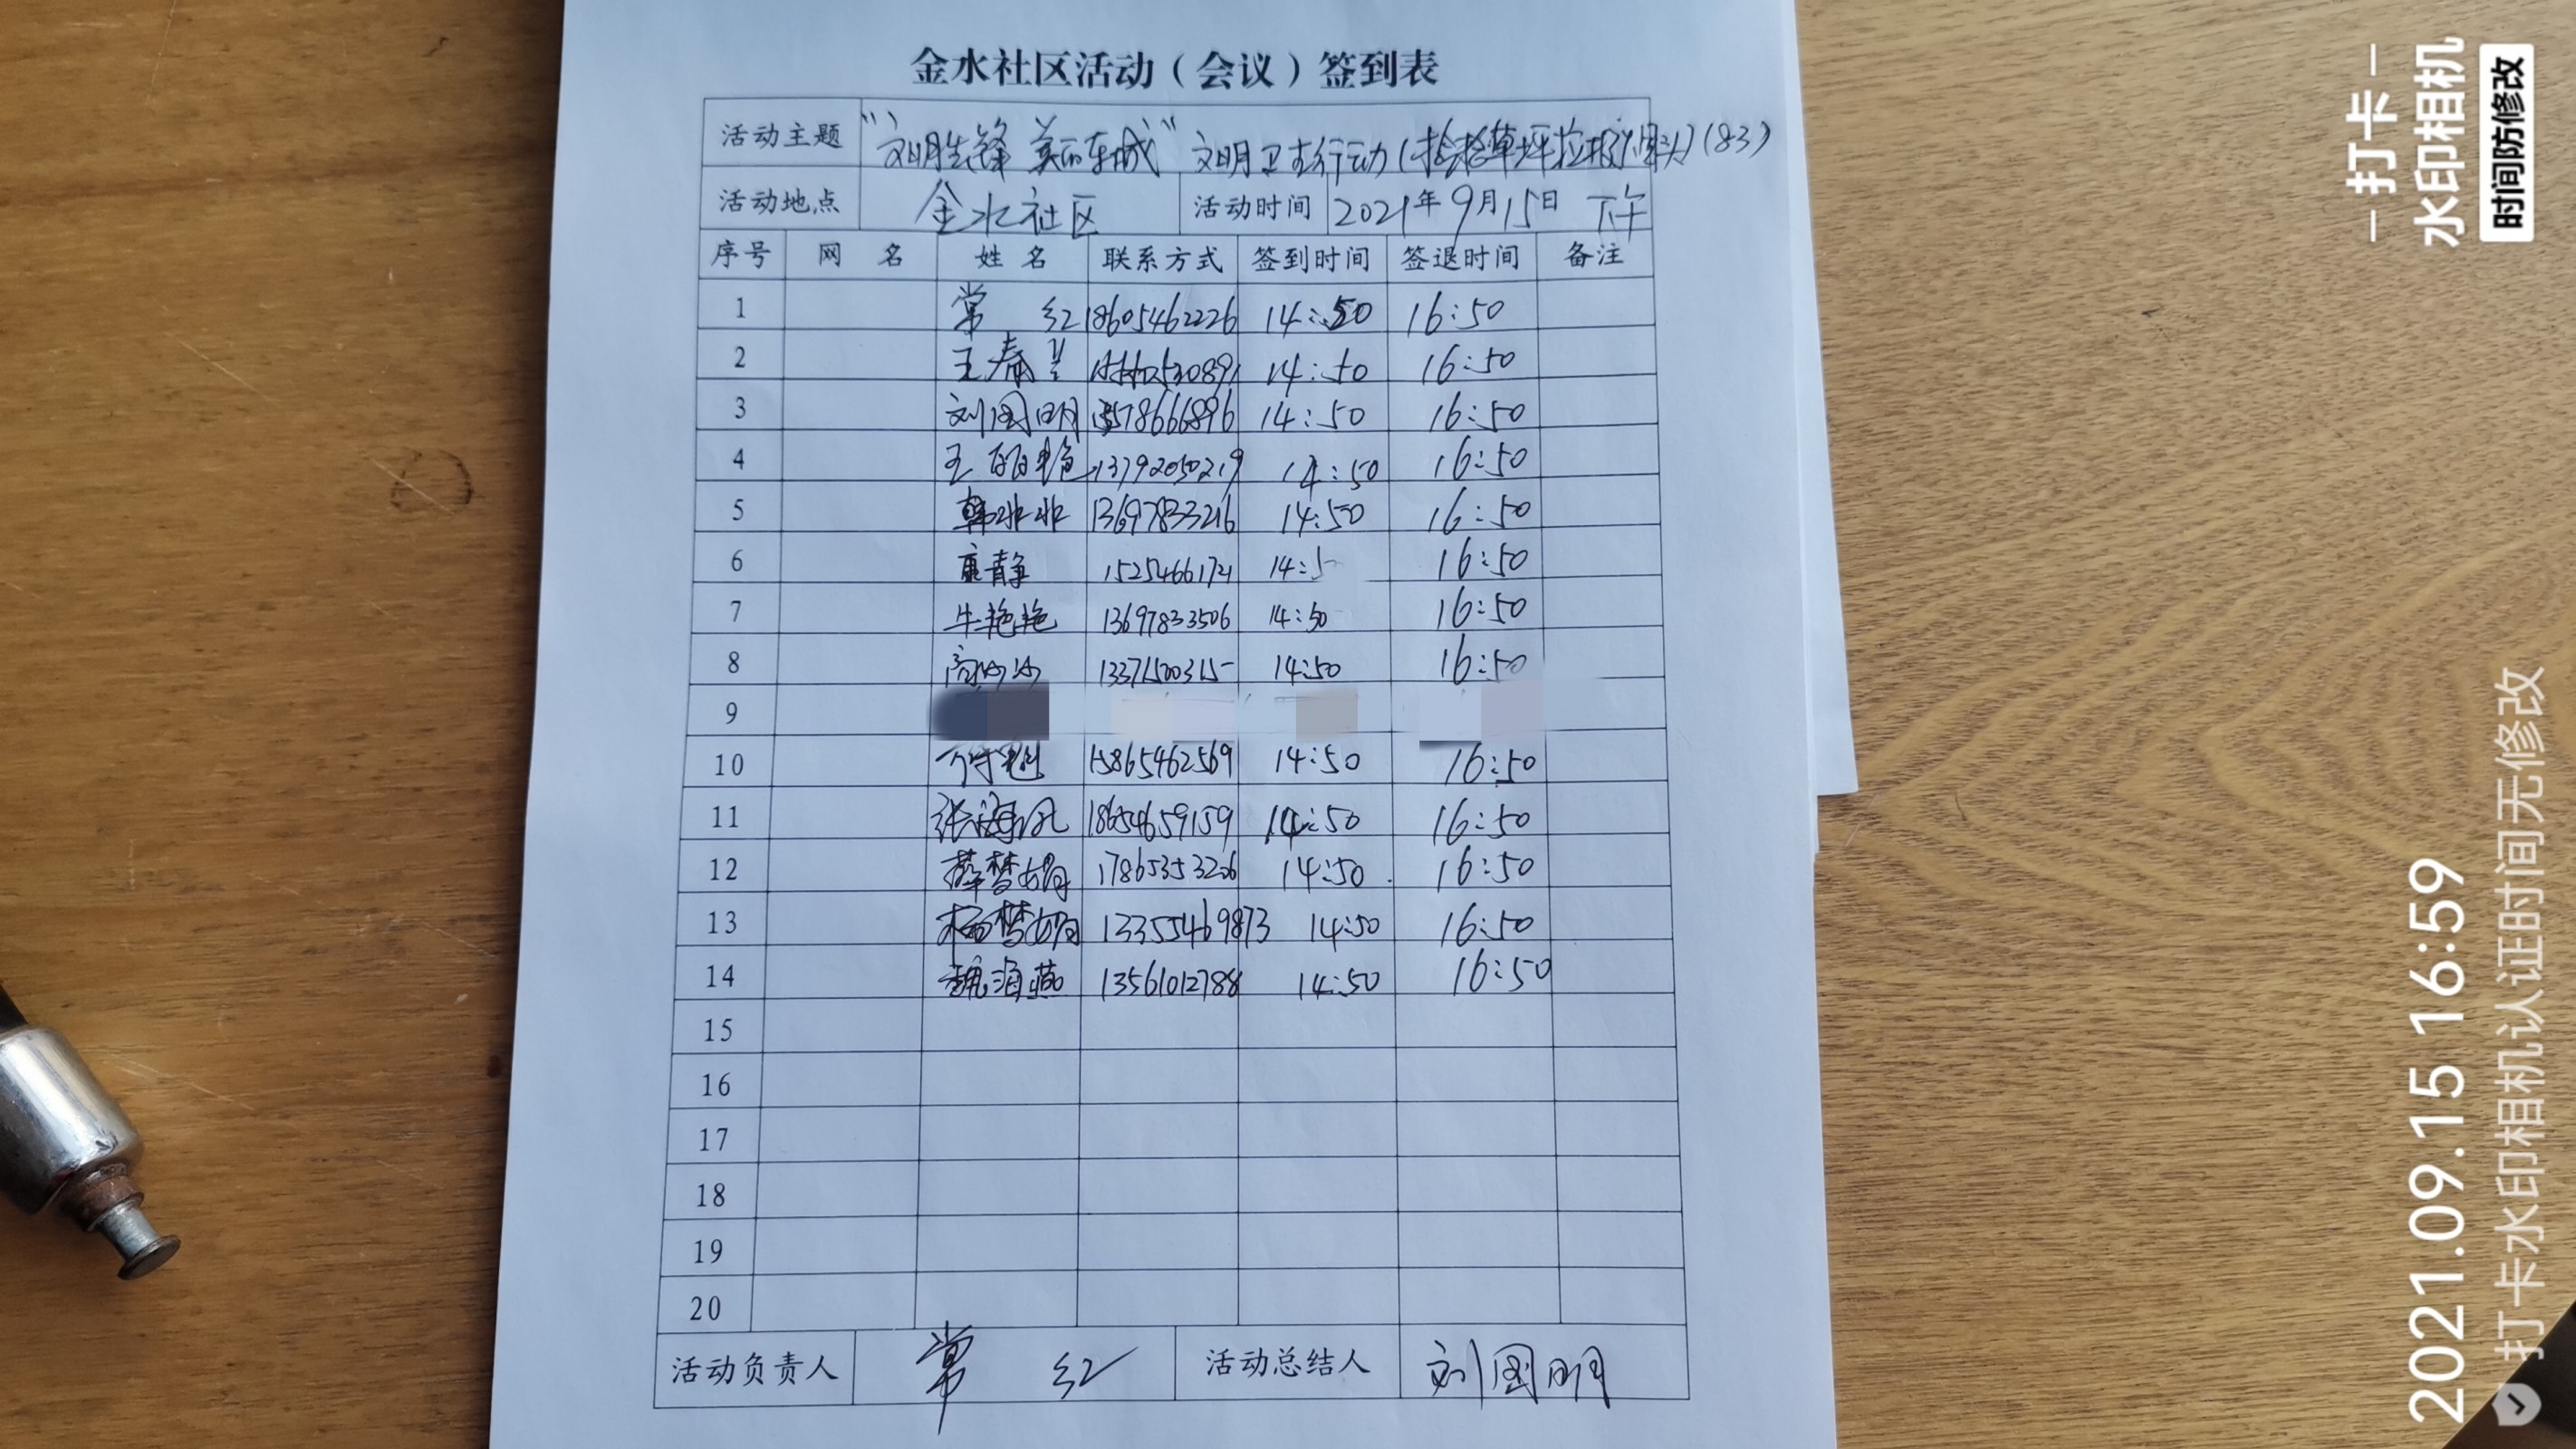 金水社区活动（会议）签到表
活动主题 "文明先锋 美丽东城" 文明卫生行动(捡拾草坪垃圾烟头)(83)
活动地点 金水社区 活动时间 2021年9月15日 下午
序号 网 名 姓 名 联系方式 签到时间 签退时间 备注
1 常 红 18605462226 14:50 16:50
2 王春兰 14:50 16:50
3 刘国明 14:50 16:50
4 王 艳 13792050219 14:50 16:50
5 韩水水 13697833216 14:50 16:50
6 康静 15254661721 14:5 16:50
7 牛艳艳 13697833506 14:50 16:50
8 高 13371500315 14:50 16:50
9
10 15865462569 14:50 16:50
11 张海风 18654659159 14:50 16:50
12 薛梦娟 17865353206 14:50 16:50
13 杨梦娟 13355469873 14:50 16:50
14 魏海燕 13561012788 14:50 16:50
15
16
17
18
19
20
活动负责人 常 红 活动总结人 刘国明
打卡
水印相机
时间防修改
2021.09.15 16:59
打卡水印相机认证时间无修改